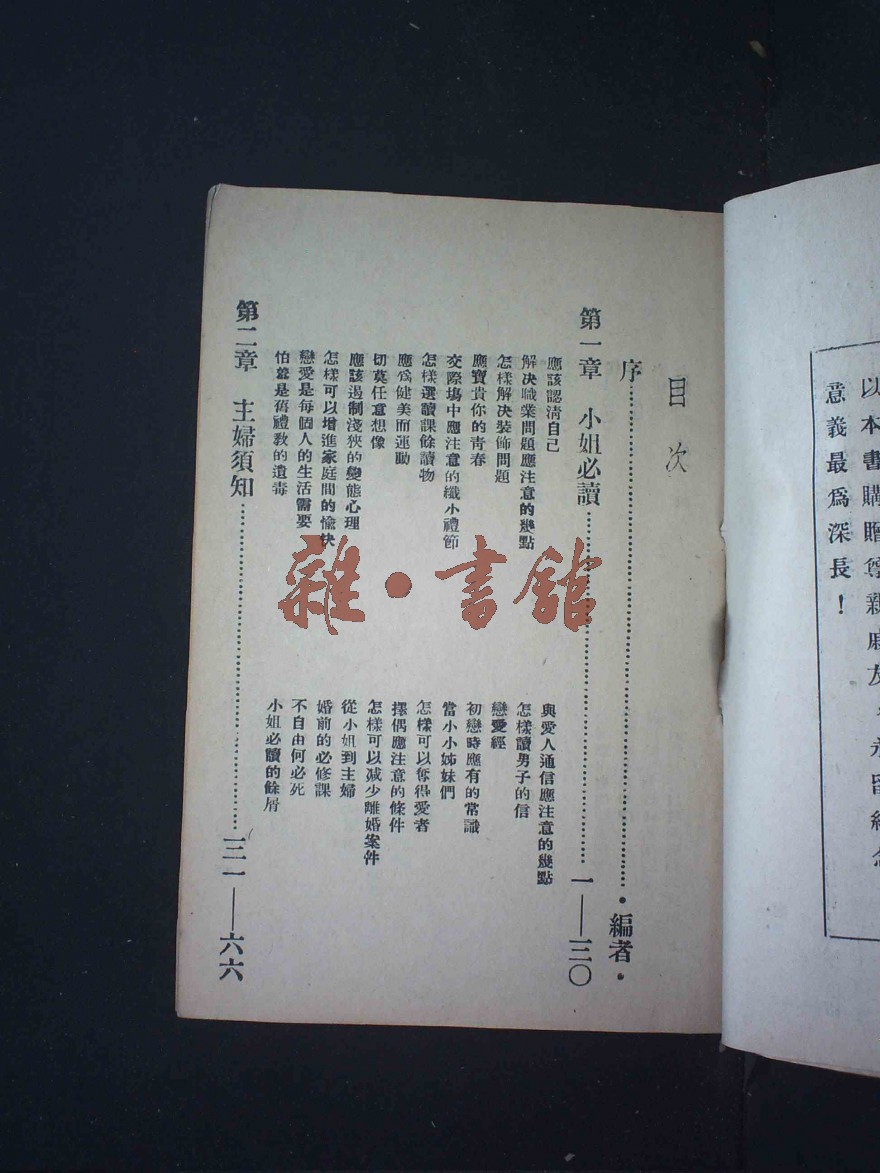 以本書購贈尊親戚友，永留紀念
意義最為深長！
目次
序・編者・
第一章 小姐必讀 一——三〇
應該認清自己
解决職業問題應注意的幾點
怎樣解决裝飾問題
應寶貴你的青春
交際塲中應注意的纖小禮節
怎樣選讀課餘讀物
應爲健美而運動
切莫任意想像
應該遏制淺狹的變態心理
怎樣可以增進家庭間的愉快
戀愛是每個人的生活需要
怕羞是舊禮教的遺毒
與愛人通信應注意的幾點
怎樣讀男子的信
戀愛經
初戀時應有的常識
當小小姊妹們
怎樣可以奪得愛者
擇偶應注意的條件
怎樣可以减少離婚案件
從小姐到主婦
婚前的必修課
不自由何必死
小姐必讀的餘屑
第二章 主婦須知 三一——六六
雜・書館